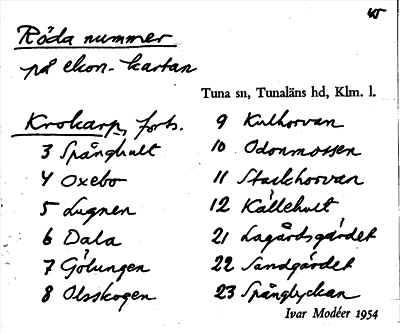 Röda nummer
på ekon. kartan
Tuna sn, Tunaläns hd, Klm. l.
Krokarp, forts.
3 Spånghult
4 Oxebo
5 Lugnen
6 Dala
7 Gölungen
8 Olsskogen
9 Kulhorvan
10 Odonmossen
11 Stackhorvan
12 Källehult
21 Lagårdsgärdet
22 Sandgärdet
23 Spånglyckan
Ivar Modéer 1954